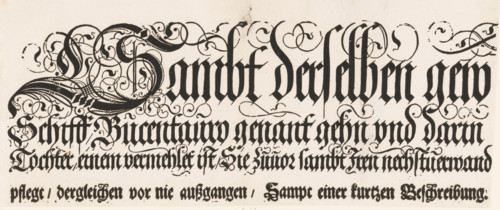 Sambt derselben gew
Schifft Bucentauro genant gehn vnd darin
Tochter, einem vermehlet ist, Sie zuuor sambt Iren nechstuerwand
pflege / dergleichen vor nie außgangen / Sampt einer kurtzen Beschreibung.